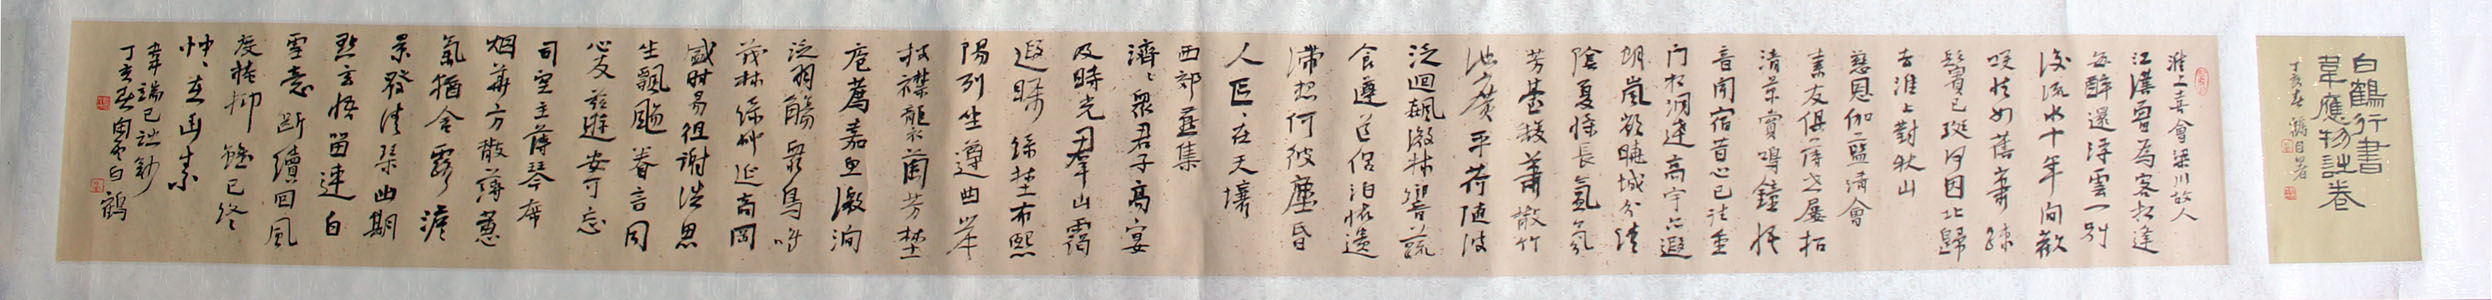 白鶴行書
韋應物詩卷
丁亥春 鶴自署
淮上喜會梁川故人
江漢曾為客相逢
每醉還浮雲一別
後流水十年間歡
咲情如舊蕭疎
鬢已斑何因北歸
去淮上對秋山
慈恩伽藍清會
素友俱薄世屢招
清景賞鳴鐘振
音聞宿昔心已往重
門相洞達高宇亦遐
朗嵐嶺曉城分清
陰夏條長氳氛
芳臺馥蕭散竹
池廣平荷隨波
泛迴飆激林響蔬
食遵道侶泊懷遺
滯想何彼塵昏
人區區在天壤
西郊燕集
濟濟眾君子高宴
及時光羣山靄
遐矚綠埜布熙
陽列坐遵曲岸
披襟襲蘭芳埜
庖薦嘉魚激澗
泛羽觴眾鳥鳴
茂林綠草延高岡
盛時易徂謝浩思
坐飄颺眷言同
心友茲遊安可忘
司空主簿琴席
烟華方散薄蕙
氣猶含露澹
景發清琴幽期
默玄悟留連白
雪意斷續回風
度掩抑雖已終
忡忡在幽素
韋端已詩鈔
丁亥春 白鶴